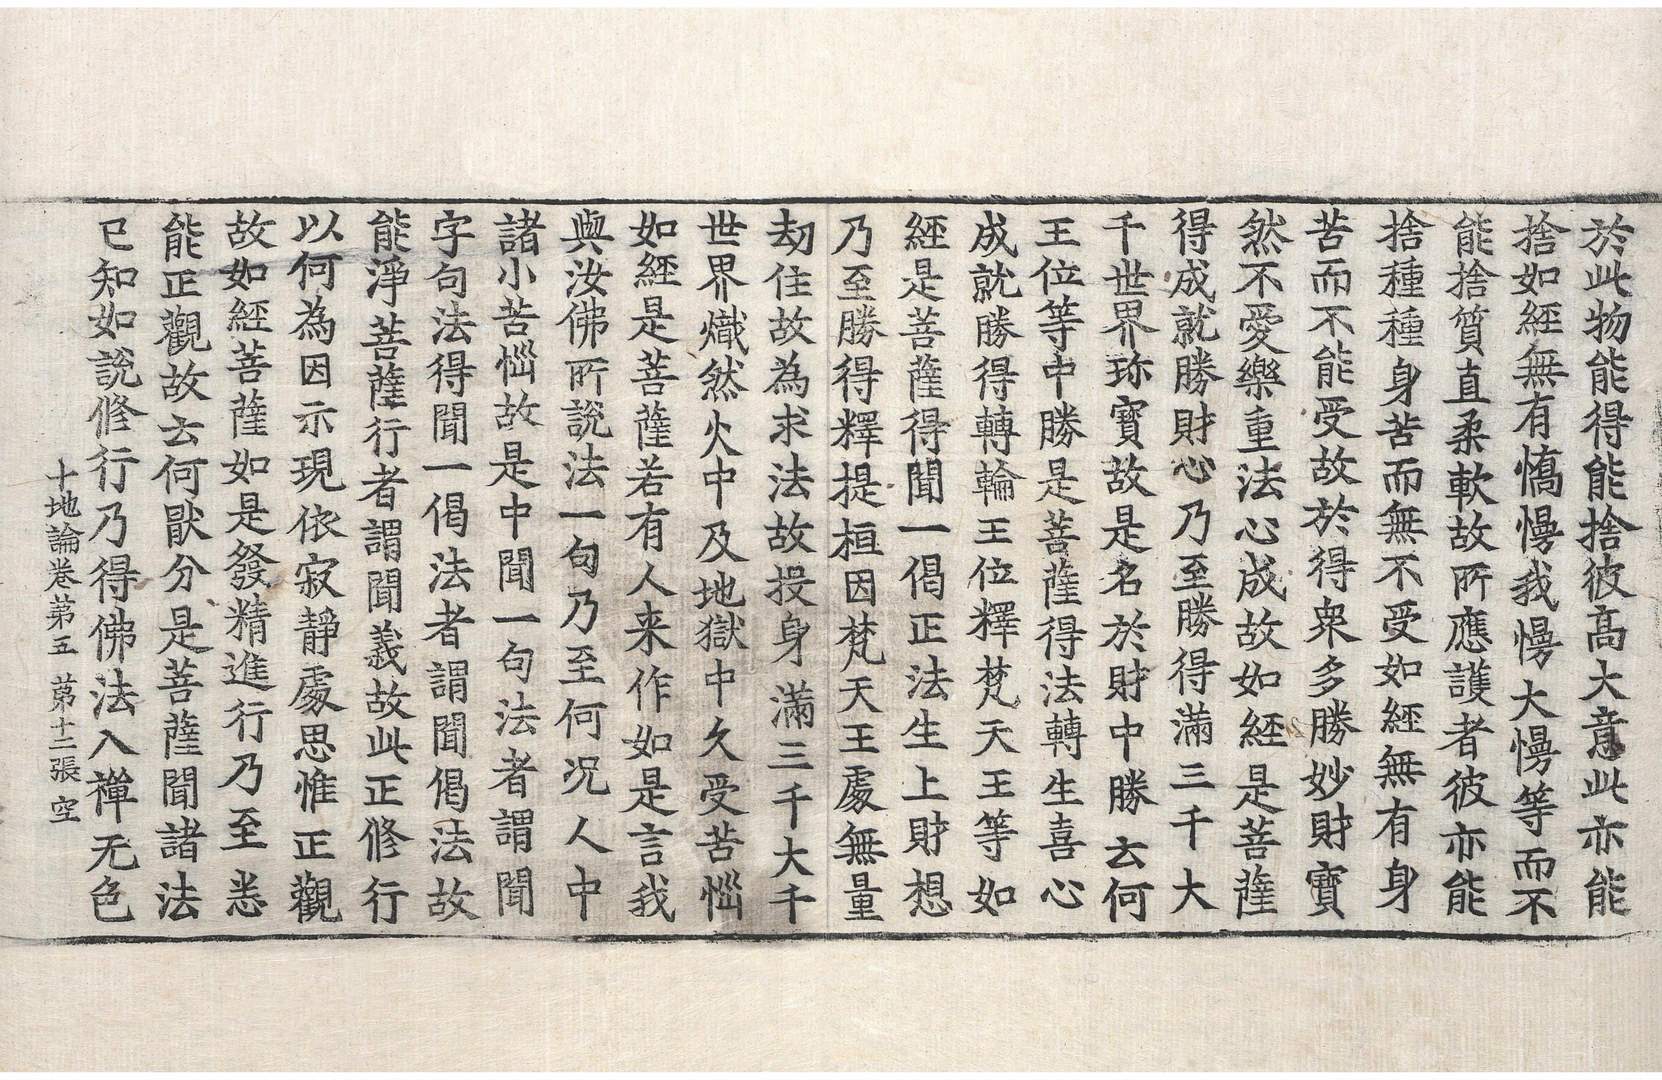 於此物能得能捨彼高大意此亦能
捨如經無有憍慢我慢大慢等而不
能捨質直柔軟故所應護者彼亦能
捨種種身苦而無不受如經無有身
苦而不能受故於得衆多勝妙財寶
然不愛樂重法心成故如經是菩薩
得成就勝財心乃至勝得滿三千大
千世界珎寶故是名於財中勝云何
王位等中勝是菩薩得法轉生喜心
成就勝得轉輪王位釋梵天王等如
經是菩薩得聞一偈正法生上財想
乃至勝得釋提桓因梵天王處無量
劫住故為求法故投身滿三千大千
世界熾然火中及地獄中久受苦惱
如經是菩薩若有人来作如是言我
與汝佛所說法一句乃至何况人中
諸小苦惱故是中聞一句法者謂聞
字句法得聞一偈法者謂聞偈法故
能淨菩薩行者謂聞義故此正修行
以何為因示現依寂靜處思惟正觀
故如經菩薩如是發精進行乃至悉
能正觀故云何猒分是菩薩聞諸法
已知如說修行乃得佛法入禪无色
十地論卷第五　第十二張　空